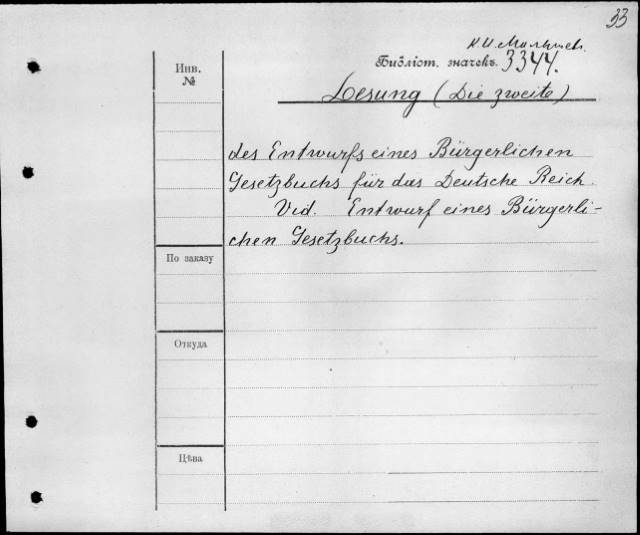 33
К. И. Малышев.
Инв.
№
Библіот. значекъ. 3344.
Lesung (Die zweite)
des Entwurfs eines Bürgerlichen
Gesetzbuchs für das Deutsche Reich.
Vid. Entwurf eines Bürgerli-
chen Gesetzbuchs.
По заказу
Откуда
Цѣна